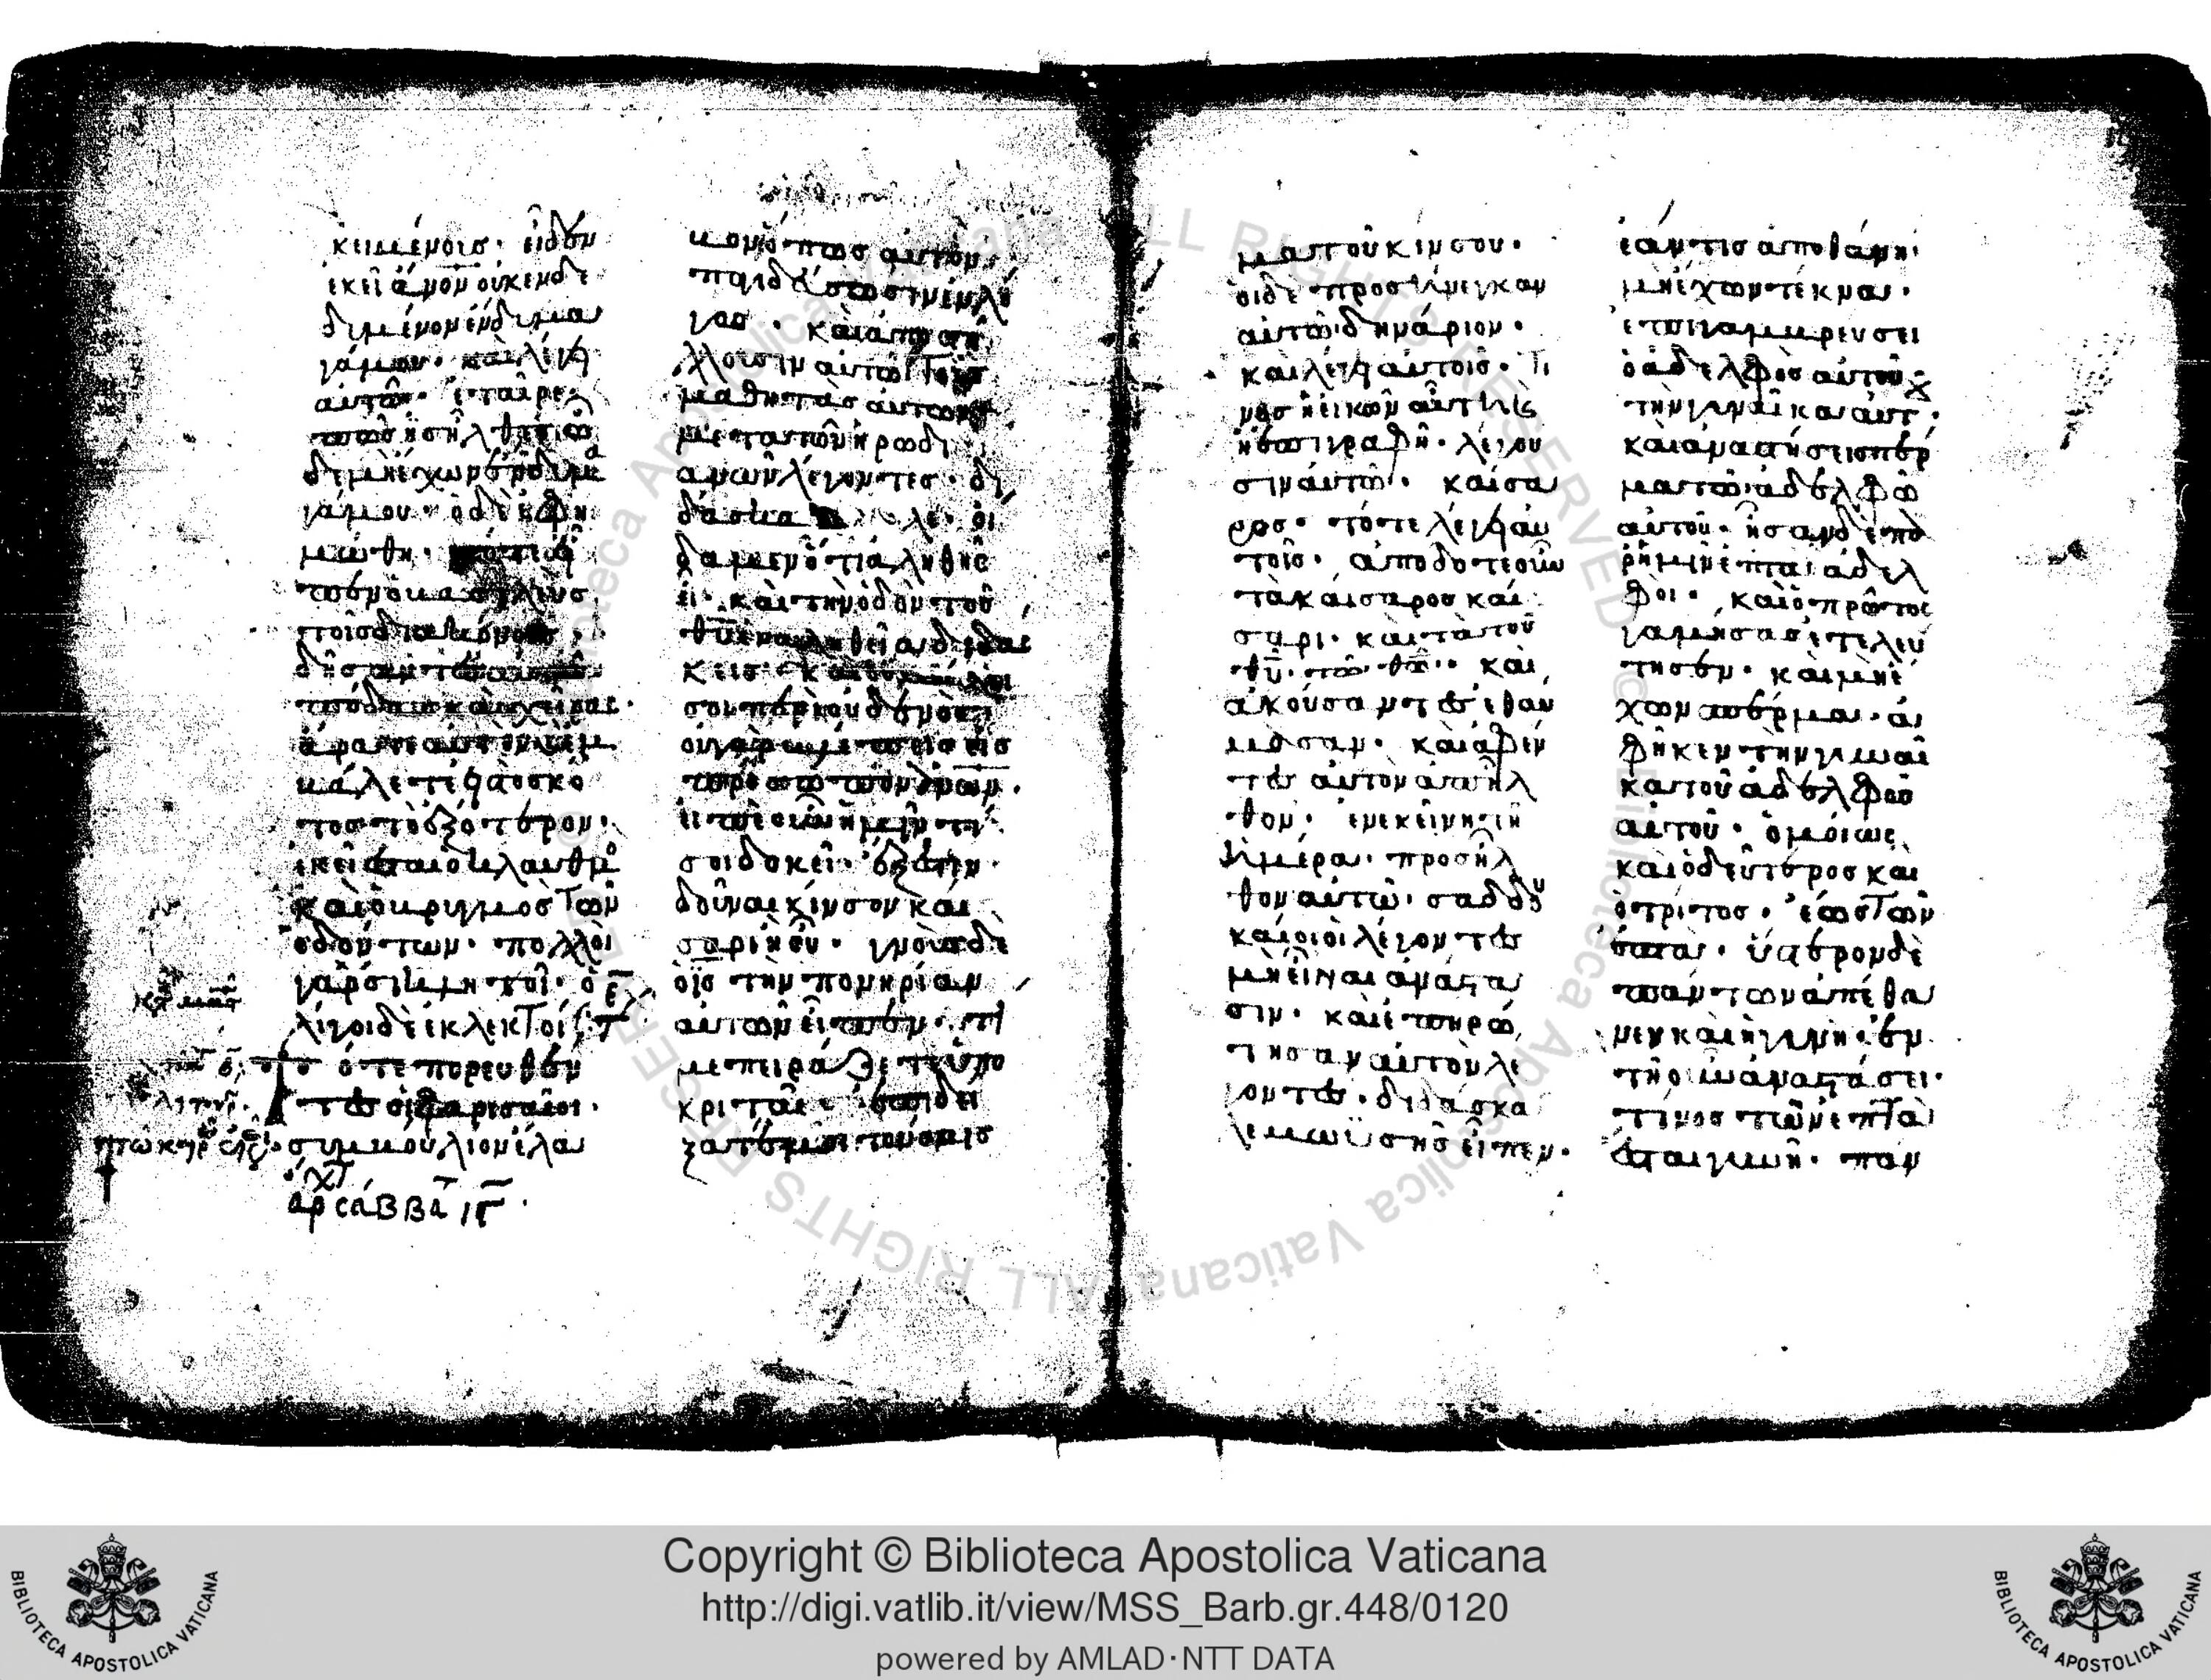 κειμένοισ· εἶδεν
ἐκεῖ ἄνον οὐκ ἐνδε
δυμένον ἔνδυμα
γάμου· καὶ λέγει
αὐτῶ· ἑταῖρε
πῶσ ἠσῆλθες ὧ
δε μὴ ἔχων ἔνδυμα
γάμου· ὁ δὲ ἐφη
μώθη·
τοῖσ διακόνοισ
πόδασ καὶ χεῖρας·
ἄρατε αὐτὸν καὶ ἐμ
βάλετε εἰσ τὸ σκό
τοσ τὸ ἐξότερον·
ἐκεῖ ἔσται ὁ κλαυθμὸ
καὶ ὁ βρυγμὸσ τῶν
ὀδόντων· πολλοὶ
γάρ εἰσι κλητοὶ· ὀ
λίγοι δὲ ἐκλεκτοί
τότε πορευθέν
τες οἱ φαρισαῖοι·
συμβούλιον ἔλα
αρ σάββα ιγ·
βον ὅπωσ αὐτὸν
παγιδεύσωσιν ἐν λό
γω· καὶ ἀποστέ
λλουσιν αὐτῶ τοὺσ
μαθητὰσ αὐτῶν
μετὰ τῶν ἡρωδι
ανῶν λέγοντεσ· δι
δάσκαλε· οἴ
δαμεν ὅτι ἀληθὴς
εἶ· καὶ τὴν ὁδὸν τοῦ
θῦ ἐν ἀληθεία διδάσ
κεισ· καὶ οὐ μέλει
σοι περὶ οὐδενόσ·
οὐ γὰρ βλέπεισ εἰσ
πρόσωπον ἀνων·
εἰπὲ οὖν ἡμῖν τί
σοι δοκεῖ· ἔξεστιν
δοῦναι κίνσον καί
σαρι ἢ οὔ· γνοὺσ δὲ
ὁ ισ τὴν πονηρίαν
αὐτῶν εἶπεν· τί
με πειράζετε ὑπο
κριταί· ἐπιδεί
ξατέ μοι τὸ νόμισ
μα τοῦ κίνσου·
οἱ δὲ προσήνεγκαν
αὐτῶ δηνάριον·
καὶ λέγει αὐτοῖσ· τί
νοσ ἡ εἰκὼν αὕτη κς
ἡ ἐπιγραφή· λέγου
σιν αὐτῶ· καίσα
ροσ· τότε λέγει αὐ
τοῖσ· ἀπόδοτε οὖν
τὰ καίσαροσ καί
σαρι· καὶ τὰ τοῦ
θῦ· τῶ θῶ· καὶ
ἀκούσαντες ἐθαύ
μασαν· καὶ ἀφέν
τες αὐτὸν ἀπῆλ
θον· ἐν ἐκείνη τῆ
ἡμέρα· προσῆλ
θον αὐτῶ· σαδδου
καῖοι οἱ λέγοντες
μὴ εἶναι ἀνάστα
σιν· καὶ ἐπηρώ
τησαν αὐτὸν λέ
γοντες· διδάσκα
λε μωϋσῆσ εἶπεν·
ἐάν τισ ἀποθάνη·
μὴ ἔχων τέκνα·
ἐπιγαμβρεύσει
ὁ ἀδελφὸσ αὐτοῦ
τὴν γυναῖκα αὐτ·
καὶ ἀναστήσει σπέρ
μα τῶ ἀδελφῶ
αὐτοῦ· ἦσαν δὲ πα
ρ' ἡμῖν ἑπτὰ ἀδελ
φοί· καὶ ὁ πρῶτοσ
γαμήσασ ἐτελεύ
τησεν· καὶ μὴ ἔ
χων σπέρμα· ἀ
φῆκεν τὴν γυναῖ
κα τοῦ ἀδελφοῦ
αὐτοῦ· ὁμοίως
καὶ ὁ δεύτεροσ καὶ
ὁ τρίτοσ· ἕωσ τῶν
ἑπτά· ὕστερον δὲ
πάντων ἀπέθα
νεν καὶ ἡ γυνή· ἐν
τῆ οὖν ἀναστάσει·
τίνοσ τῶν ἑπτὰ
ἔσται γυνή· πάν
Copyright © Biblioteca Apostolica Vaticana
http://digi.vatlib.it/view/MSS_Barb.gr.448/0120
powered by AMLAD·NTT DATA
BIBLIOTECA APOSTOLICA VATICANA
BIBLIOTECA APOSTOLICA VATICANA